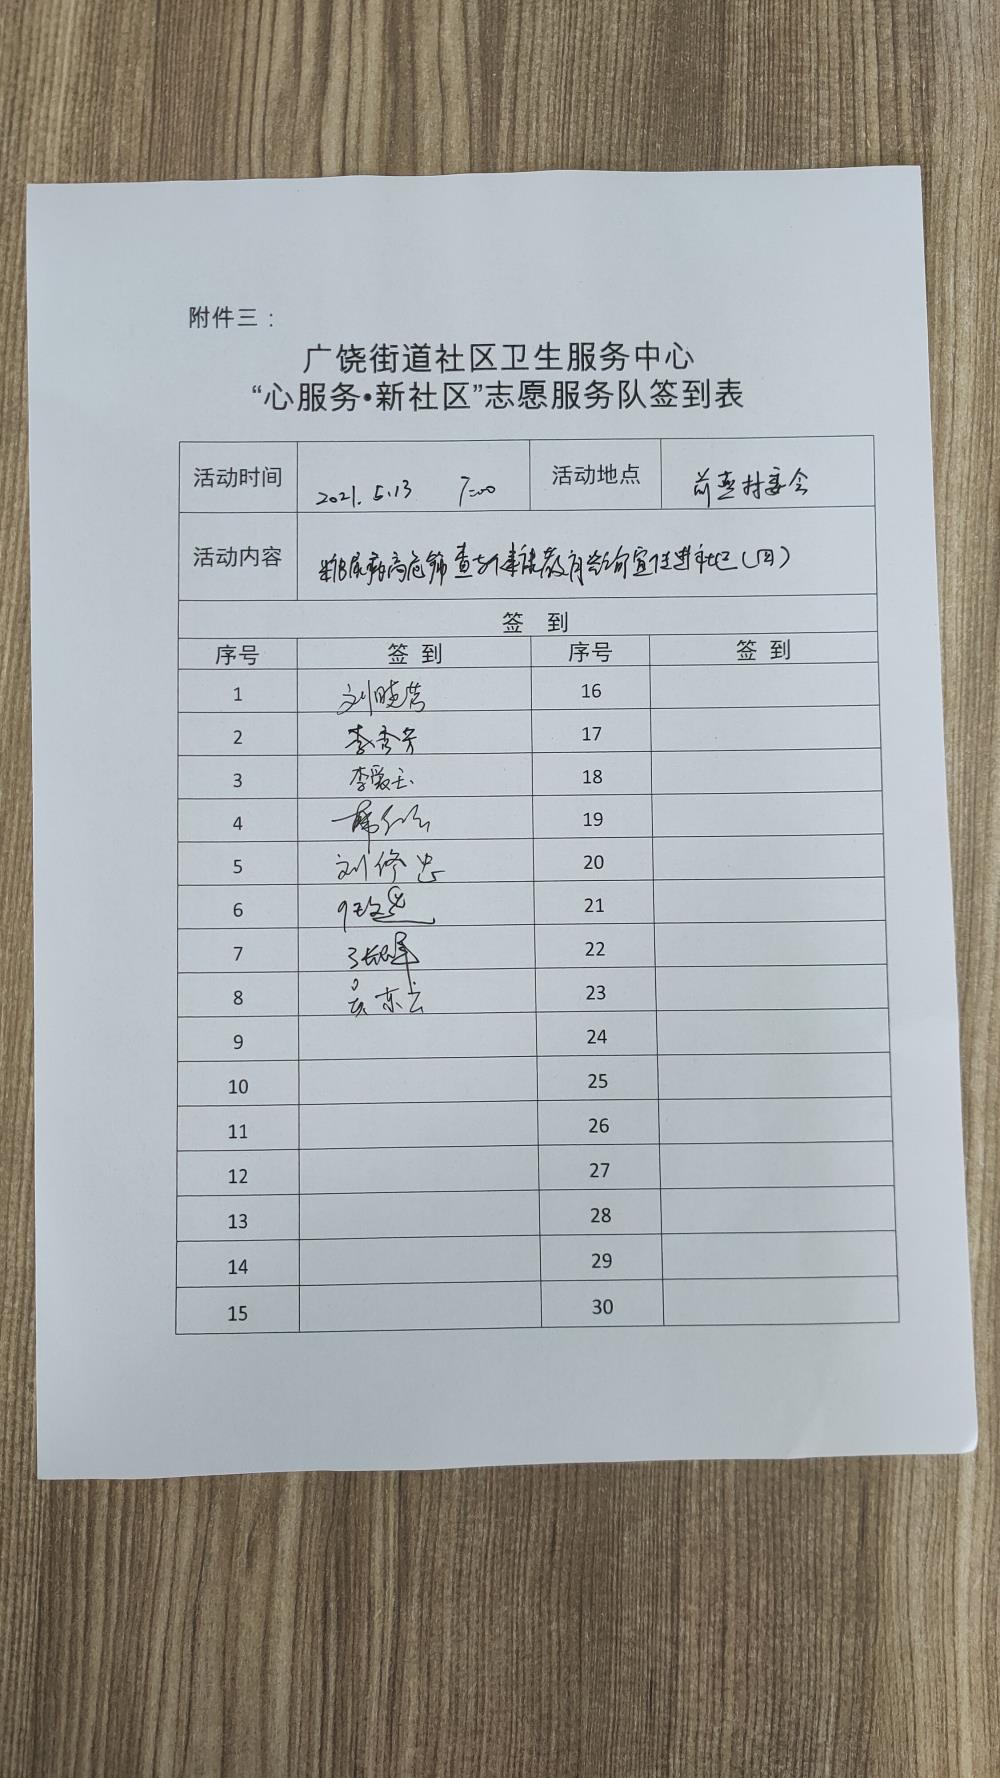 附件三：
广饶街道社区卫生服务中心
“心服务•新社区”志愿服务队签到表
活动时间 2021.5.13 7:00 活动地点 前 村委会
活动内容 糖尿病高危筛查与健康教育 宣传进社区（四）
签 到
序号 签 到 序号 签 到
1 刘晓芳 16
2 李秀芳 17
3 李爱玉 18
4 19
5 刘修忠 20
6 21
7 22
8 吴东云 23
9 24
10 25
11 26
12 27
13 28
14 29
15 30